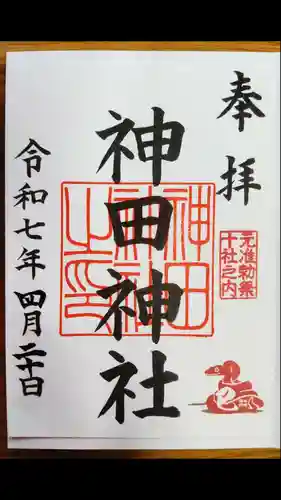 奉拝
元准勅祭
十社之内
神田神社
神田神社之印
令和七年四月二十日